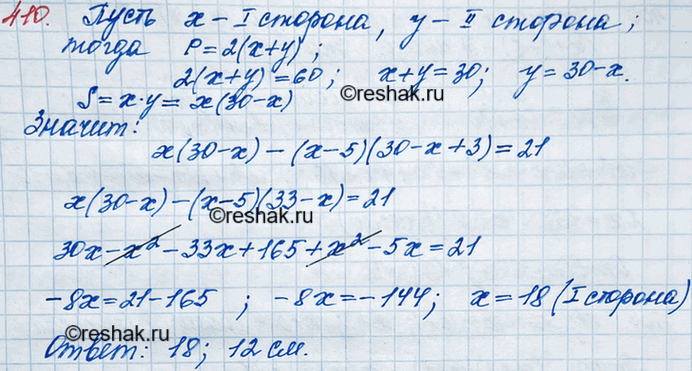 410. Пусть x – I сторона, y – II сторона;
тогда P = 2(x+y);
2(x+y) = 60; x+y = 30; y = 30–x.
S = x·y = x(30–x)
©reshak.ru
Значит:
x(30–x) – (x–5)(30–x+3) = 21
x(30–x) – (x–5)(33–x) = 21
©reshak.ru
30x – x² – 33x + 165 + x² – 5x = 21
–8x = 21–165 ; –8x = –144; x = 18 (I сторона)
©reshak.ru
Ответ: 18; 12 см.